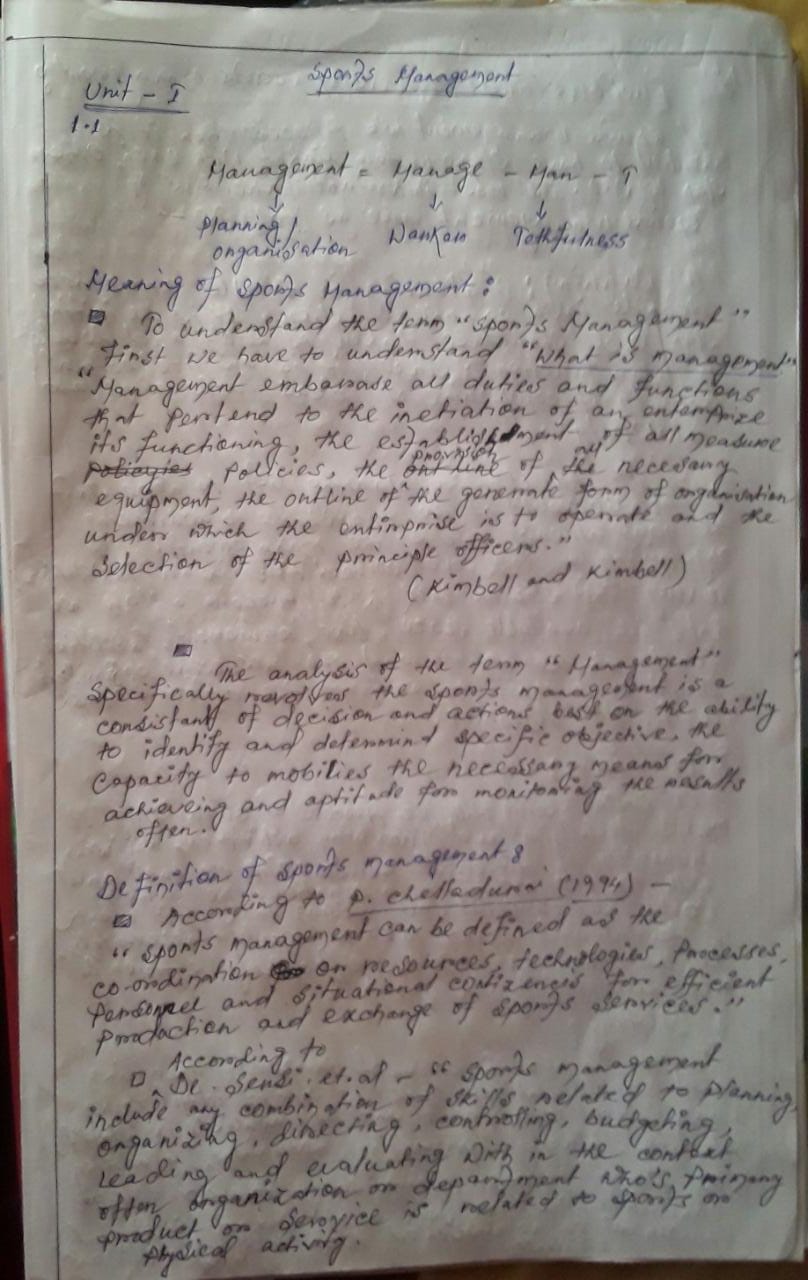 Sports Management
Unit - I
1.1
Management = Manage - Man - T
↓ ↓ ↓
planning/ Tothfulness
organisation
Meaning of sports Management:
To understand the term "sports Management"
first we have to understand "what is management"
"Management embarase all duties and functions
that pertend to the inetiation of an enterprize
its functioning, the establishment of all measure
policyies policies, the provision out line of the all necessary
equipment, the outline of the generate form of organisation
under which the entirprise is to operate and the
selection of the principle officers."
(Kimbell and Kimbell)
The analysis of the term "Management"
specifically revolves the sports management is a
consistant of decision and actions base on the ability
to identify and determind specific objective, the
capacity to mobilies the necessary means for
achieveing and aptitude for monitoring the results
often.
Definition of sports management :
According to P. Chelladurai (1994) –
"sports management can be defined as the
co-ordination on resources, technologies, processes,
personnel and situational contizencis for efficient
production and exchange of sports services."
According to
De. Sensi. et. al – "sports management
include any combination of skills related to planning,
organizing, directing, controlling, budgeting,
leading and evaluating with in the context
often organization or department who's primary
product or servoice is related to sports or
physical activity.